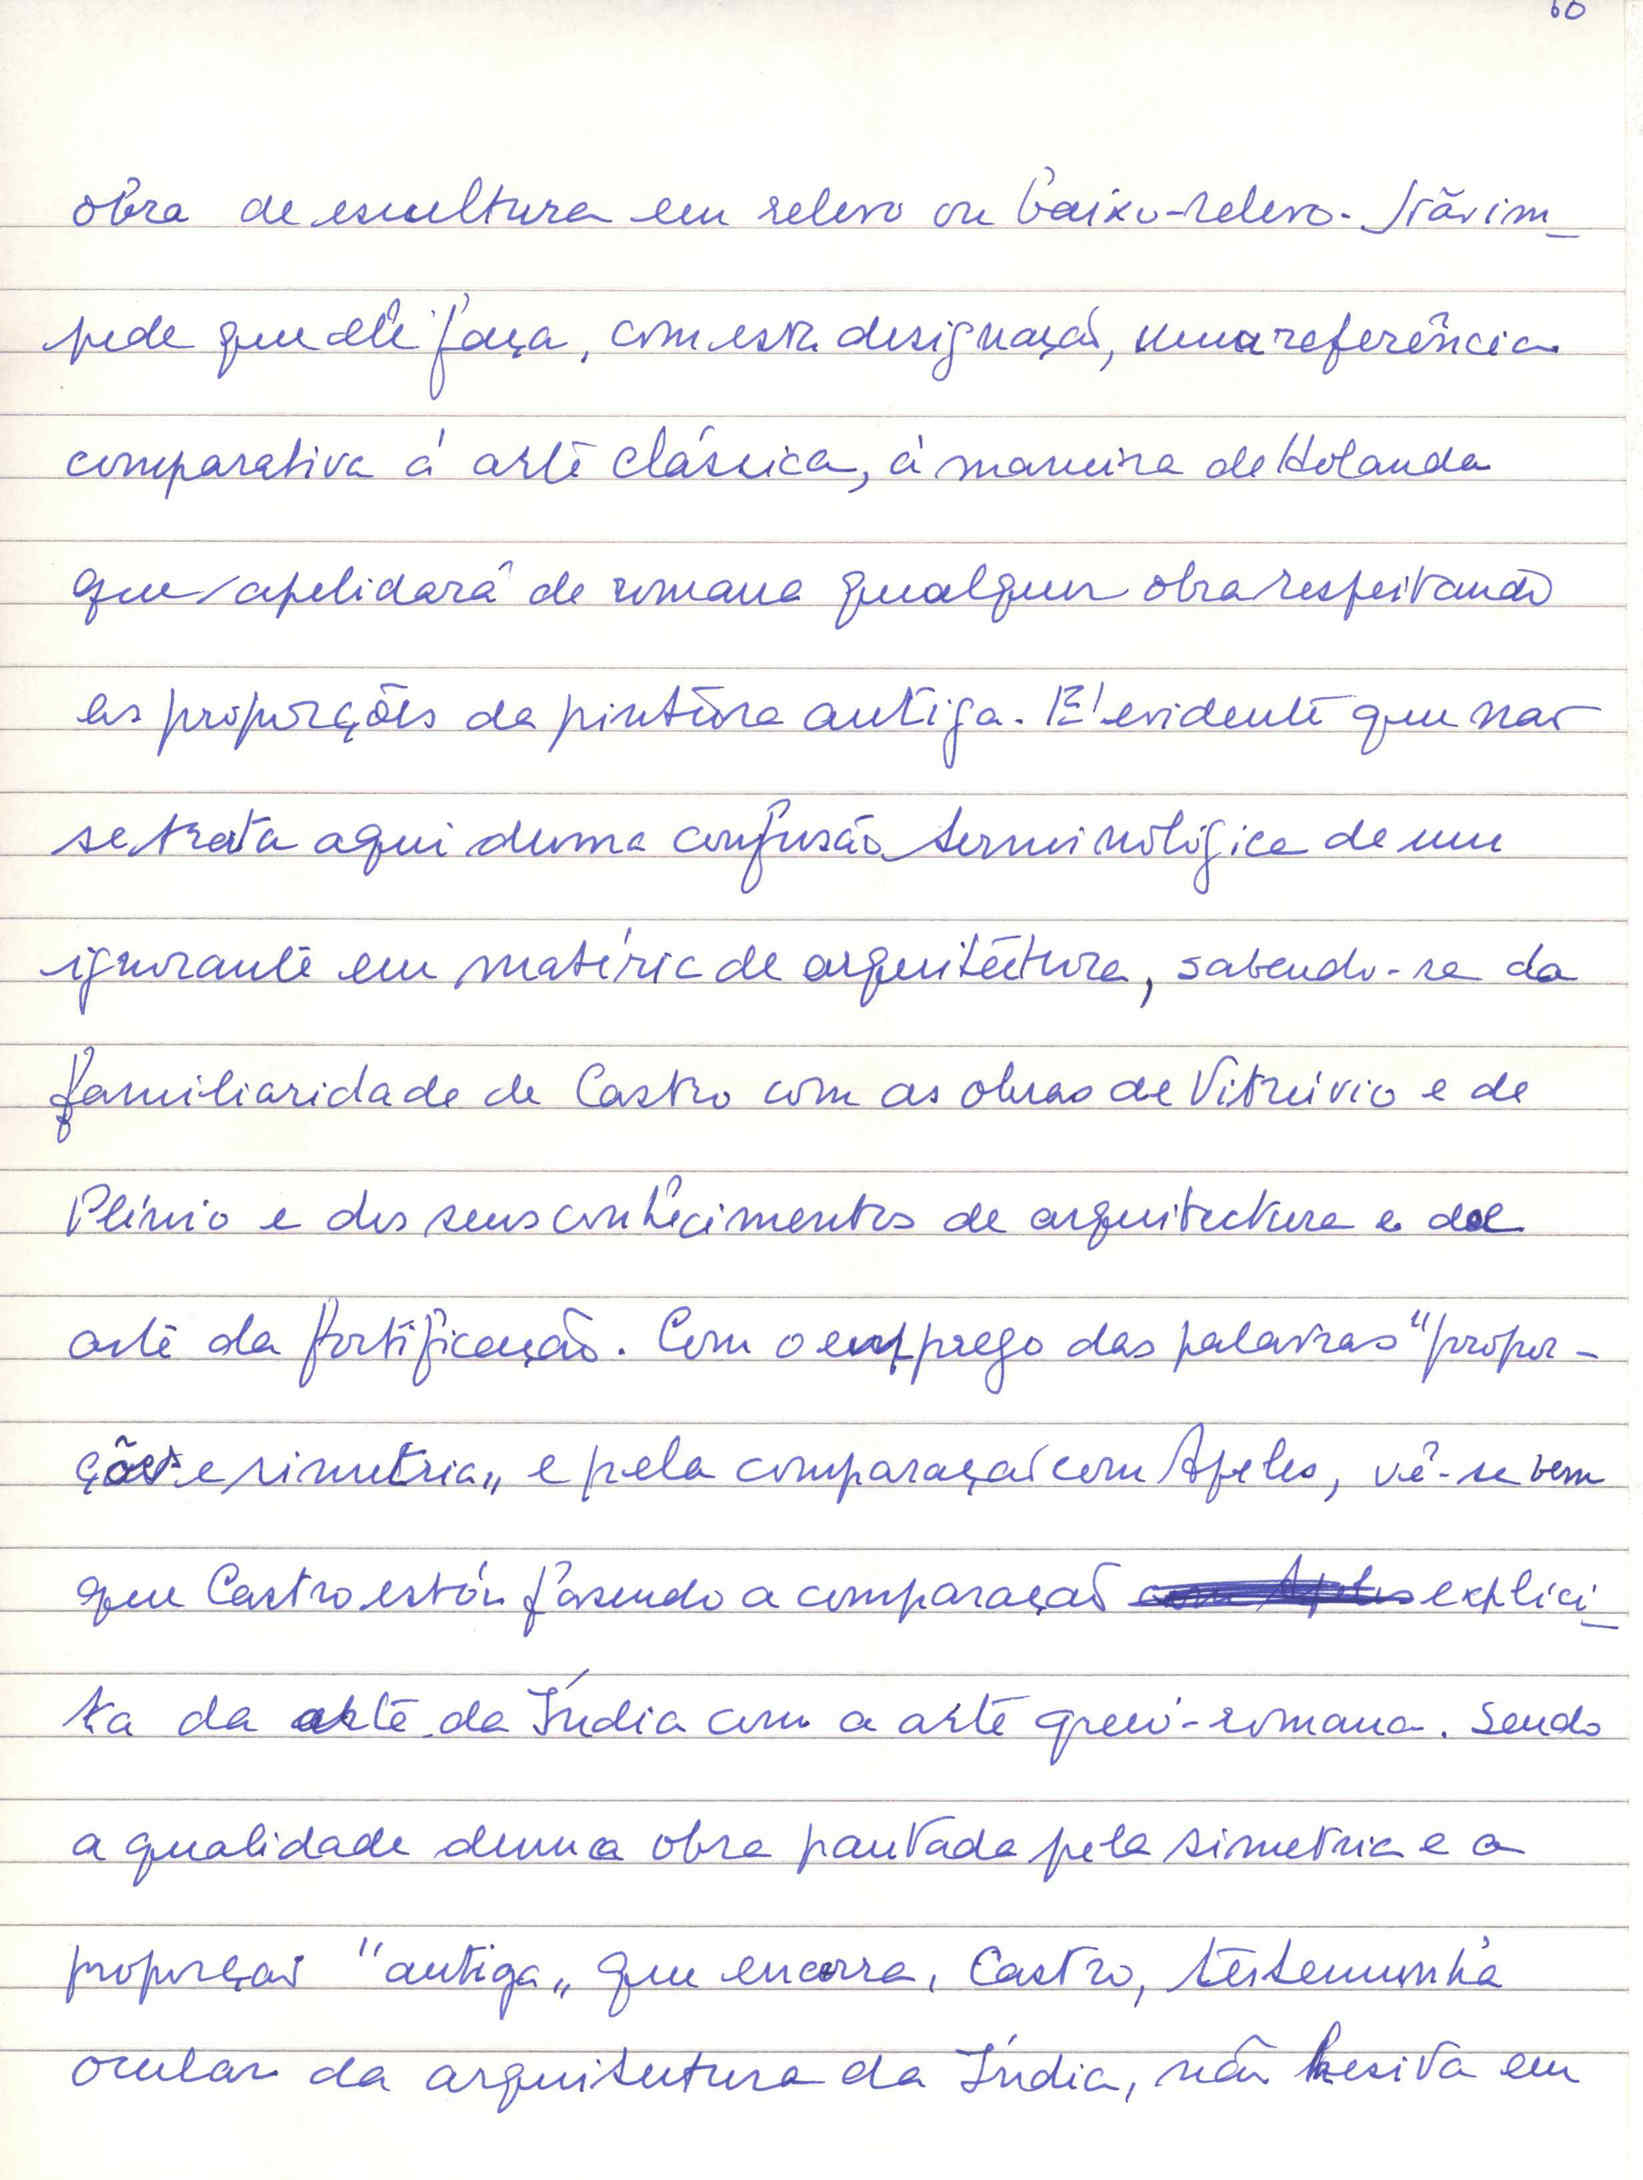 60
obra de escultura em relevo ou baixo-relevo. Não im-
pede que ele faça, com esta designação, uma referência
comparativa á arte clássica, á maneira de Holanda
que apelidará de romana qualquer obra respeitando
as proporções da pintura antiga. E' evidente que não
se trata aqui duma confusão terminológica de um
ignorante em matéria de arquitectura, sabendo-se da
familiaridade de Castro com as obras de Vitrúvio e de
Plínio e dos seus conhecimentos de arquitectura e de
arte da fortificação. Com o emprego das palavras "propor-
ções e simetria" e pela comparação com Apeles, vê-se bem
que Castro está fazendo a comparação com Apeles explici-
ta da arte da Índia com a arte greco-romana. Sendo
a qualidade duma obra pautada pela simetria e a
proporção "antiga" que encerra, Castro, testemunha
ocular da arquitetura da Índia, não hesita em